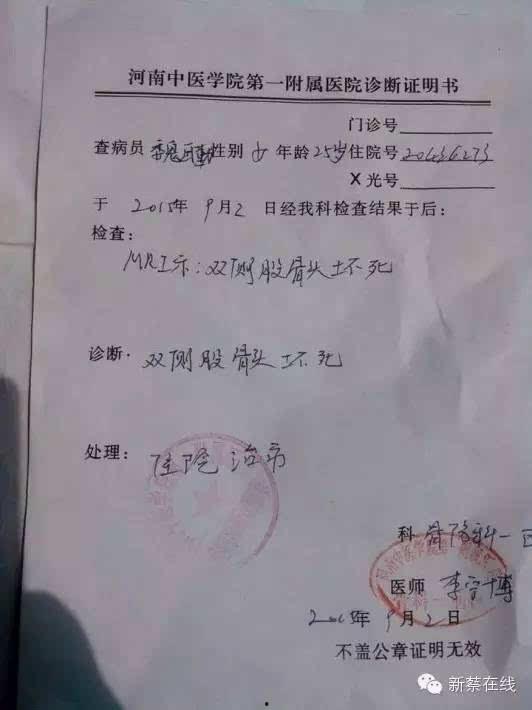 河南中医学院第一附属医院诊断证明书
门诊号
查病员 魏 性别 女 年龄 25岁 住院号 20436273
X光号
于 2015年 9月2 日经我科检查结果于后：
检查：
MRI示：双侧股骨头坏死
诊断：双侧股骨头坏死
处理：住院治疗
科 骨 科一
医师 李
2015年 9月2日
不盖公章证明无效
新蔡在线